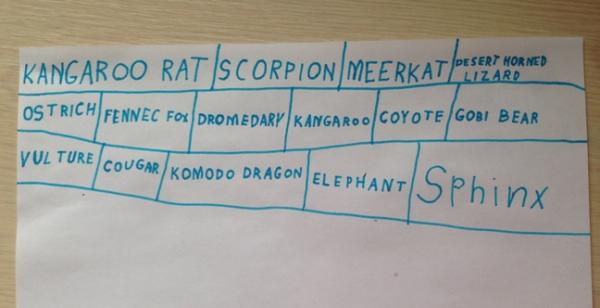 KANGAROO RAT SCORPION MEERKAT DESERT HORNED LIZARD
OSTRICH FENNEC FOX DROMEDARY KANGAROO COYOTE GOBI BEAR
VULTURE COUGAR KOMODO DRAGON ELEPHANT Sphinx